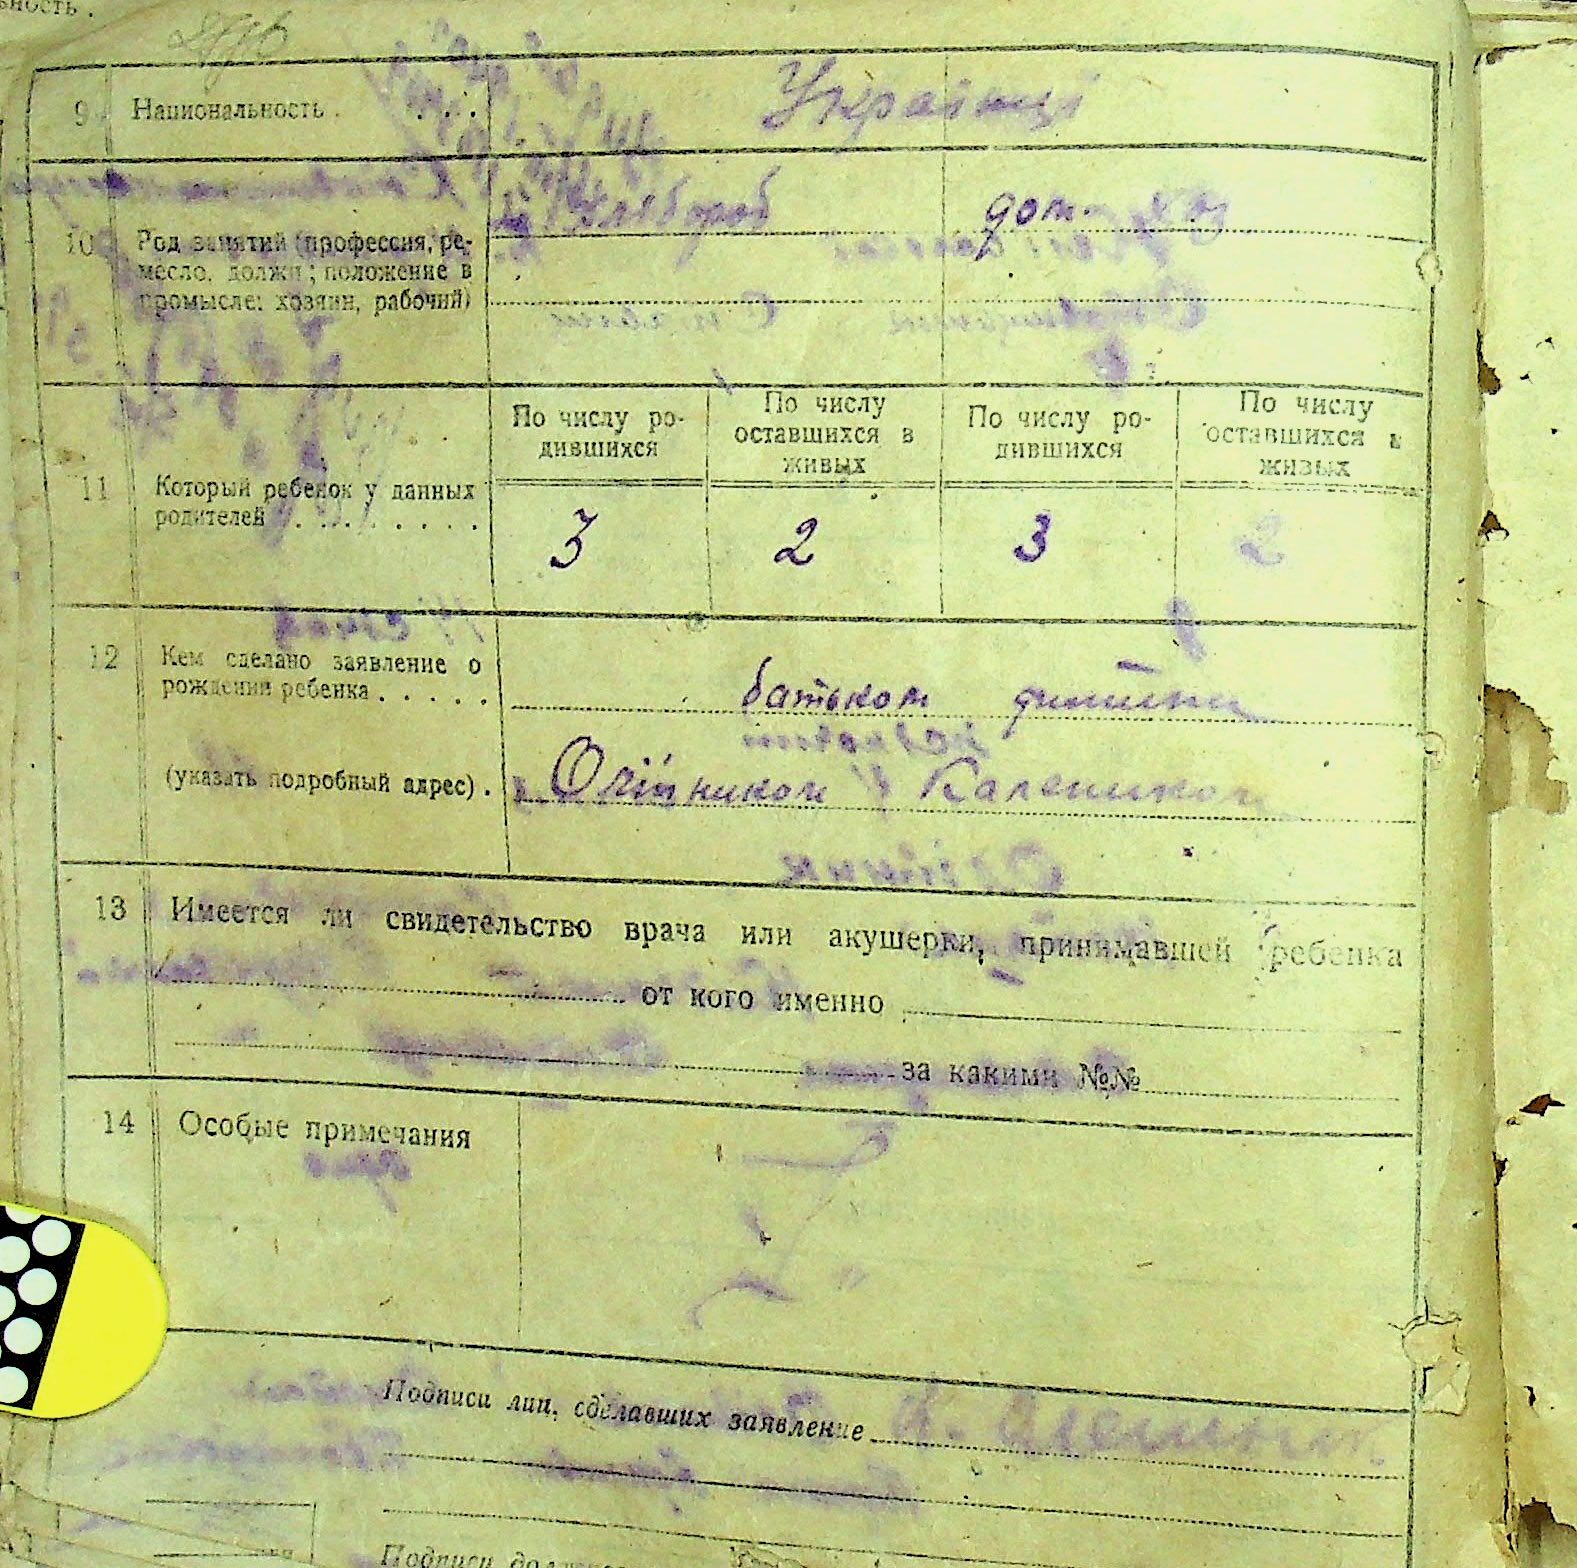 9 Национальность . . . . Українці
10 Род занятий (профессия, ре-
месло, должн; положение в
промысле: хозяин, рабочий)
Хлібороб дом.
11 Который ребенок у данных
родителей . . . . . . . . .
По числу ро-
дившихся
По числу
оставшихся в
живых
По числу ро-
дившихся
По числу
оставшихся в
живых
3 2 3 2
12 Кем сделано заявление о
рождении ребенка . . . . .
батьком дитини
(указать подробный адрес) . Олійником Калеником
13 Имеется ли свидетельство врача или акушерки, принимавшей ребенка
от кого именно
за какими №№
14 Особые примечания
Подписи лиц, сделавших заявление
Подписи